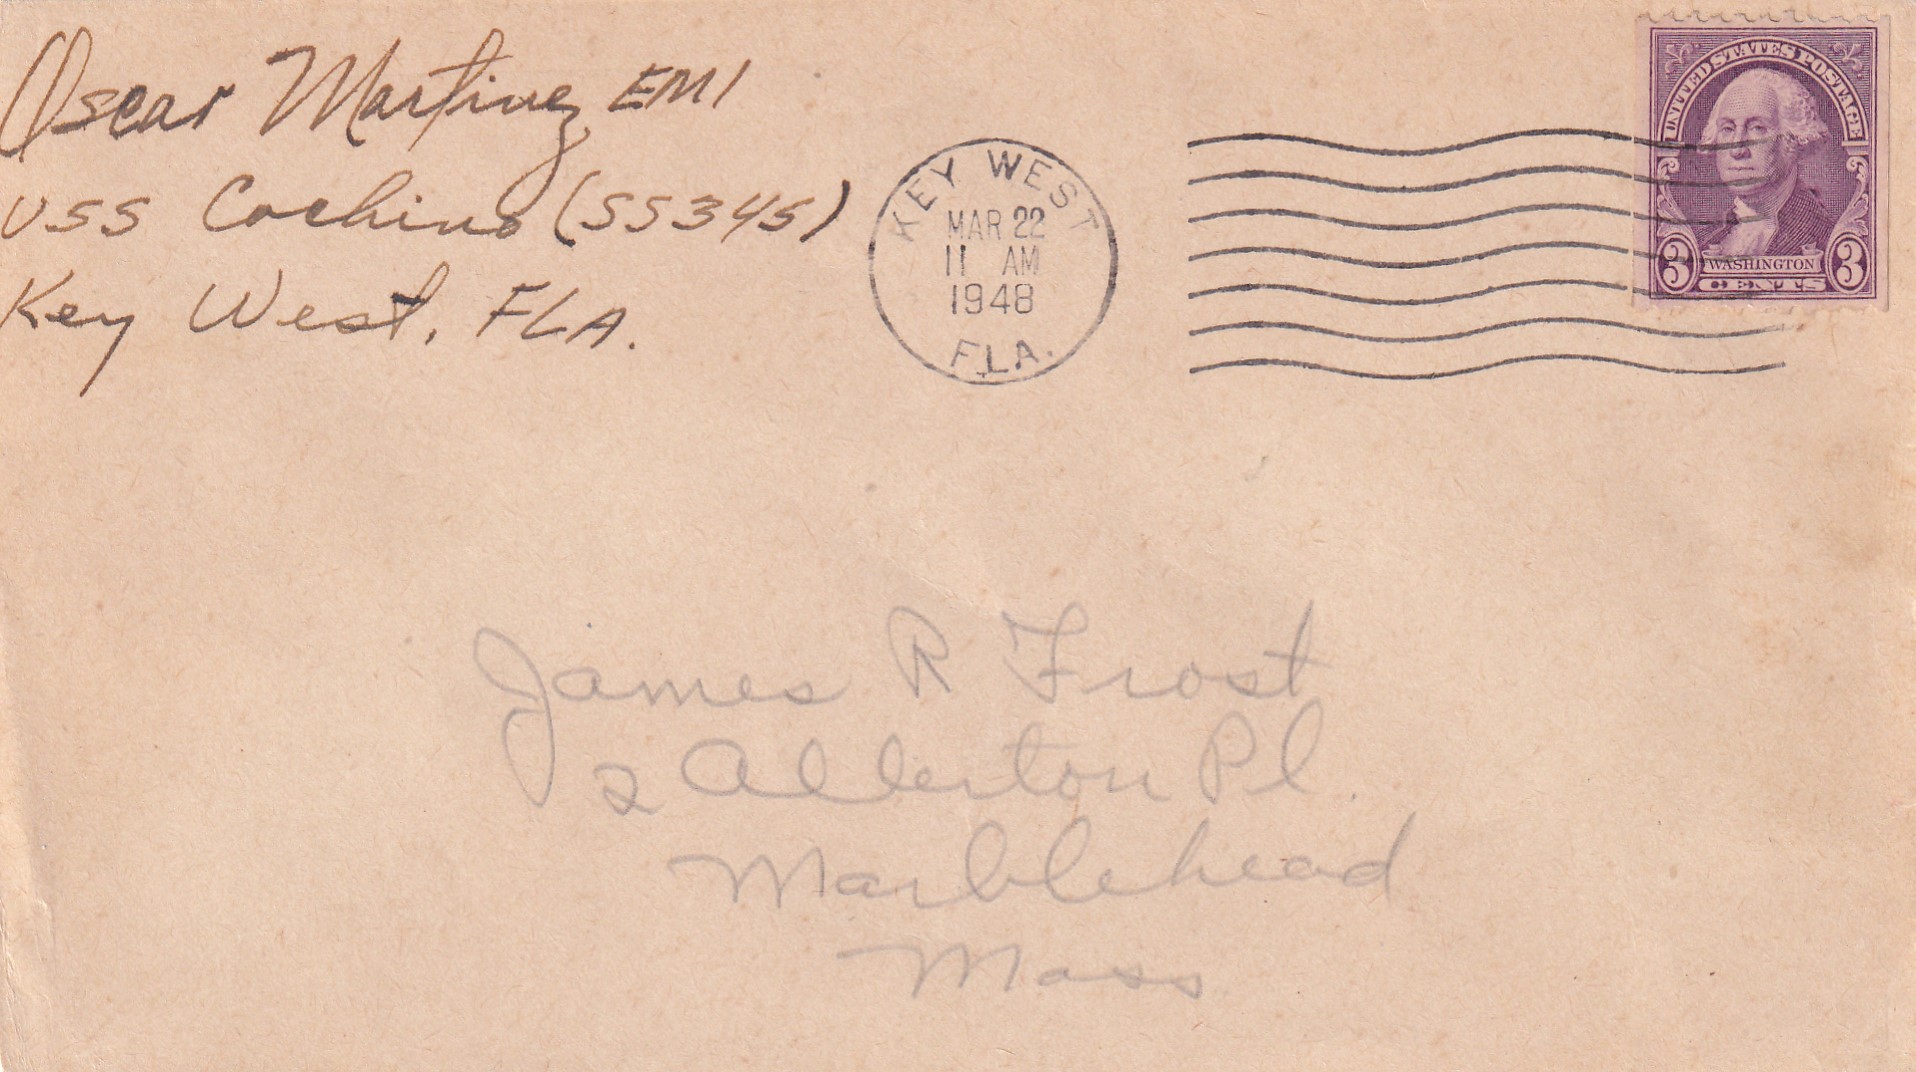 Oscar Martinez EM1
USS Cochino (SS345)
Key West, FLA.
KEY WEST
MAR 22
11 AM
1948
FLA.
UNITED STATES POSTAGE
3 WASHINGTON 3
CENTS
James R Frost
2 Allerton Pl.
Marblehead
Mass